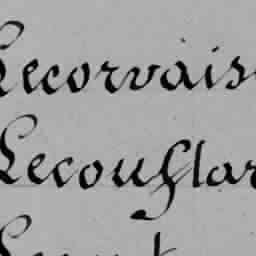 Lecorvais
Lecouflar